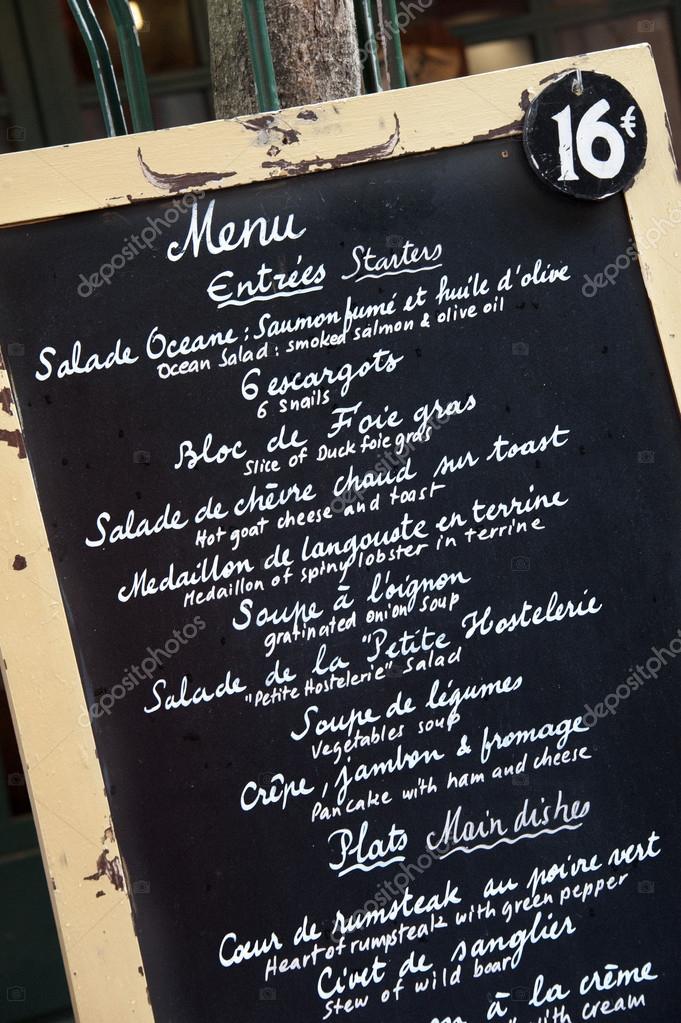 16€
Menu
Entrées Starters
Salade Oceane : Saumon fumé et huile d'olive
Ocean Salad : smoked salmon & olive oil
6 escargots
6 snails
Bloc de Foie gras
Slice of Duck foie gras
Salade de chèvre chaud sur toast
Hot goat cheese and toast
Medaillon de langouste en terrine
Medaillon of spiny lobster in terrine
Soupe à l'oignon
gratinated onion soup
Salade de la "Petite Hostelerie
"Petite Hostelerie" Salad
Soupe de légumes
Vegetables soup
Crêpe, jambon & fromage
Pancake with ham and cheese
Plats Main dishes
Cœur de rumsteak au poivre vert
Heart of rumpsteak with green pepper
Civet de sanglier
Stew of wild boar
à la crème
with cream
depositphotos